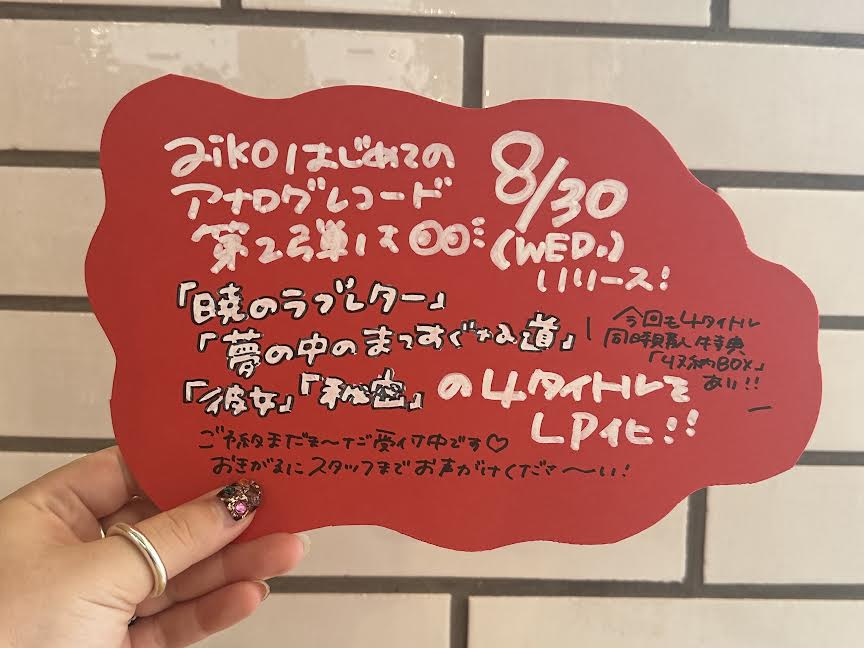 aikoはじめての
アナログレコード
第2弾は👀ミ
8/30
(WED.)
リリース!
「暁のラブレター」
「夢の中のまっすぐな道」
「彼女」「秘密」の4タイトルを
LP化!!
今回も4タイトル
同時購入特典
「収納BOX」
あり!!
ご予約まだま〜だご受付中です♡
おきがるにスタッフまでお声がけくださ〜〜い!